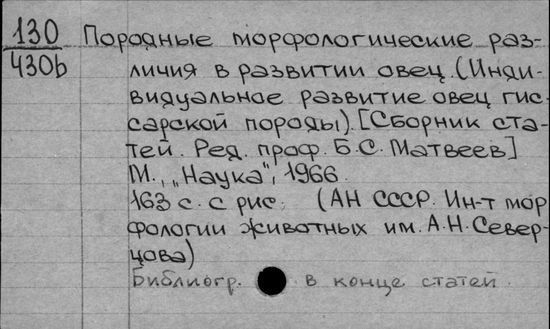 130 Породные морфологические раз-
430b личия в развитии овец. (Инди-
видуальное развитие овец гис-
сарской породы). [Сборник ста-
тей. Ред. проф. Б.С. Матвеев]
М., „Наука", 1966.
163 с. с рис. (АН СССР. Ин-т мор
фологии животных им. А.Н. Север-
цова)
Библиогр. в конце статей.